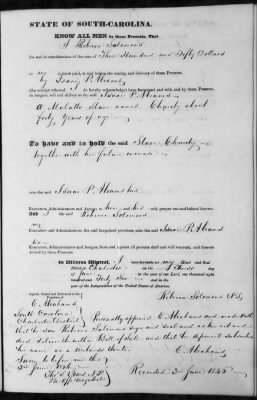 STATE OF SOUTH-CAROLINA.
KNOW ALL MEN by these Presents, That
I Rebecca Solomons
for and in consideration of the sum of Three Hundred and Fifty Dollars
to me in hand paid, at and before the sealing and delivery of these Presents,
by Isaac P. Abrams
(the receipt whereof I do hereby acknowledge) have bargained and sold, and by these Presents,
do bargain, sell and deliver to the said Isaac P. Abrams
A Mulatto Slave named Charity about
forty Years of age
To have and to hold the said Slave Charity
together with her future increase
unto the said Isaac P. Abrams his
Executors, Administrators and Assigns, to his and their only proper use and behoof forever.
AND I the said Rebecca Solomons my
Executors, Administrators, the said bargained premises, unto the said Isaac P. Abrams
his
Executors, Administrators and Assigns, from and against all persons shall and will warrant, and forever
defend by these Presents.
In Witness Whereof, I have hereunto set my Hand and Seal
Dated at Charleston on the Third Day
of June in the year of our Lord, one thousand eight
hundred and Forty Six and in the
year of the Independence of the United States of America.
Signed, Sealed and Delivered in the
Presence of
Rebecca Solomons
E. Abrahams
South Carolina
Charleston District
Personally appeared E. Abrahams and made oath
that he saw Rebecca Solomons sign and seal and as her act and
deed deliver the within Bill of Sale and that the deponent subscribed
his name as a Witness thereto.
Sworn to before me this
3rd June 1846
E. Abrahams
Recorded 3rd June 1846